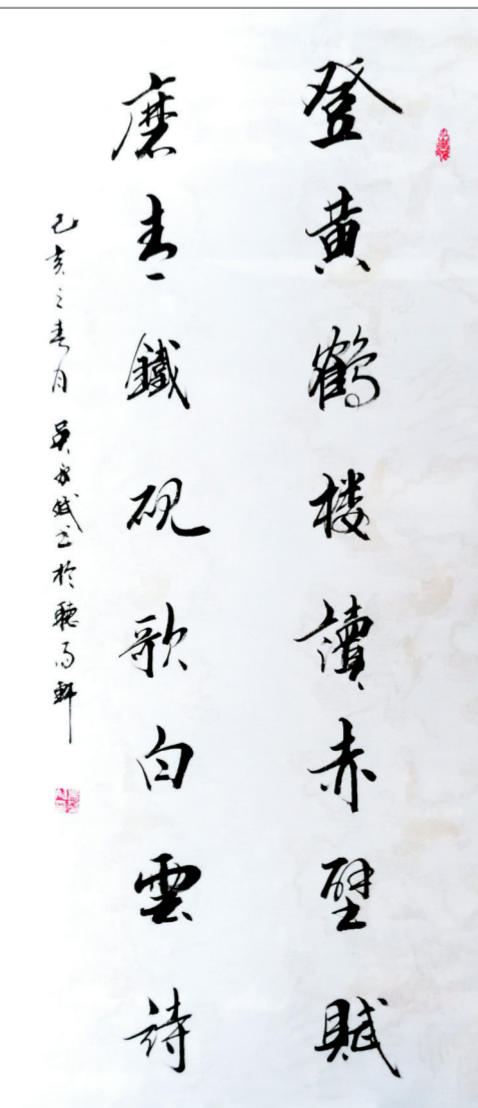 登黄鹤楼讀赤壁賦
磨青鐵硯歌白雲詩
己亥之春月吴永斌书於聽雨軒